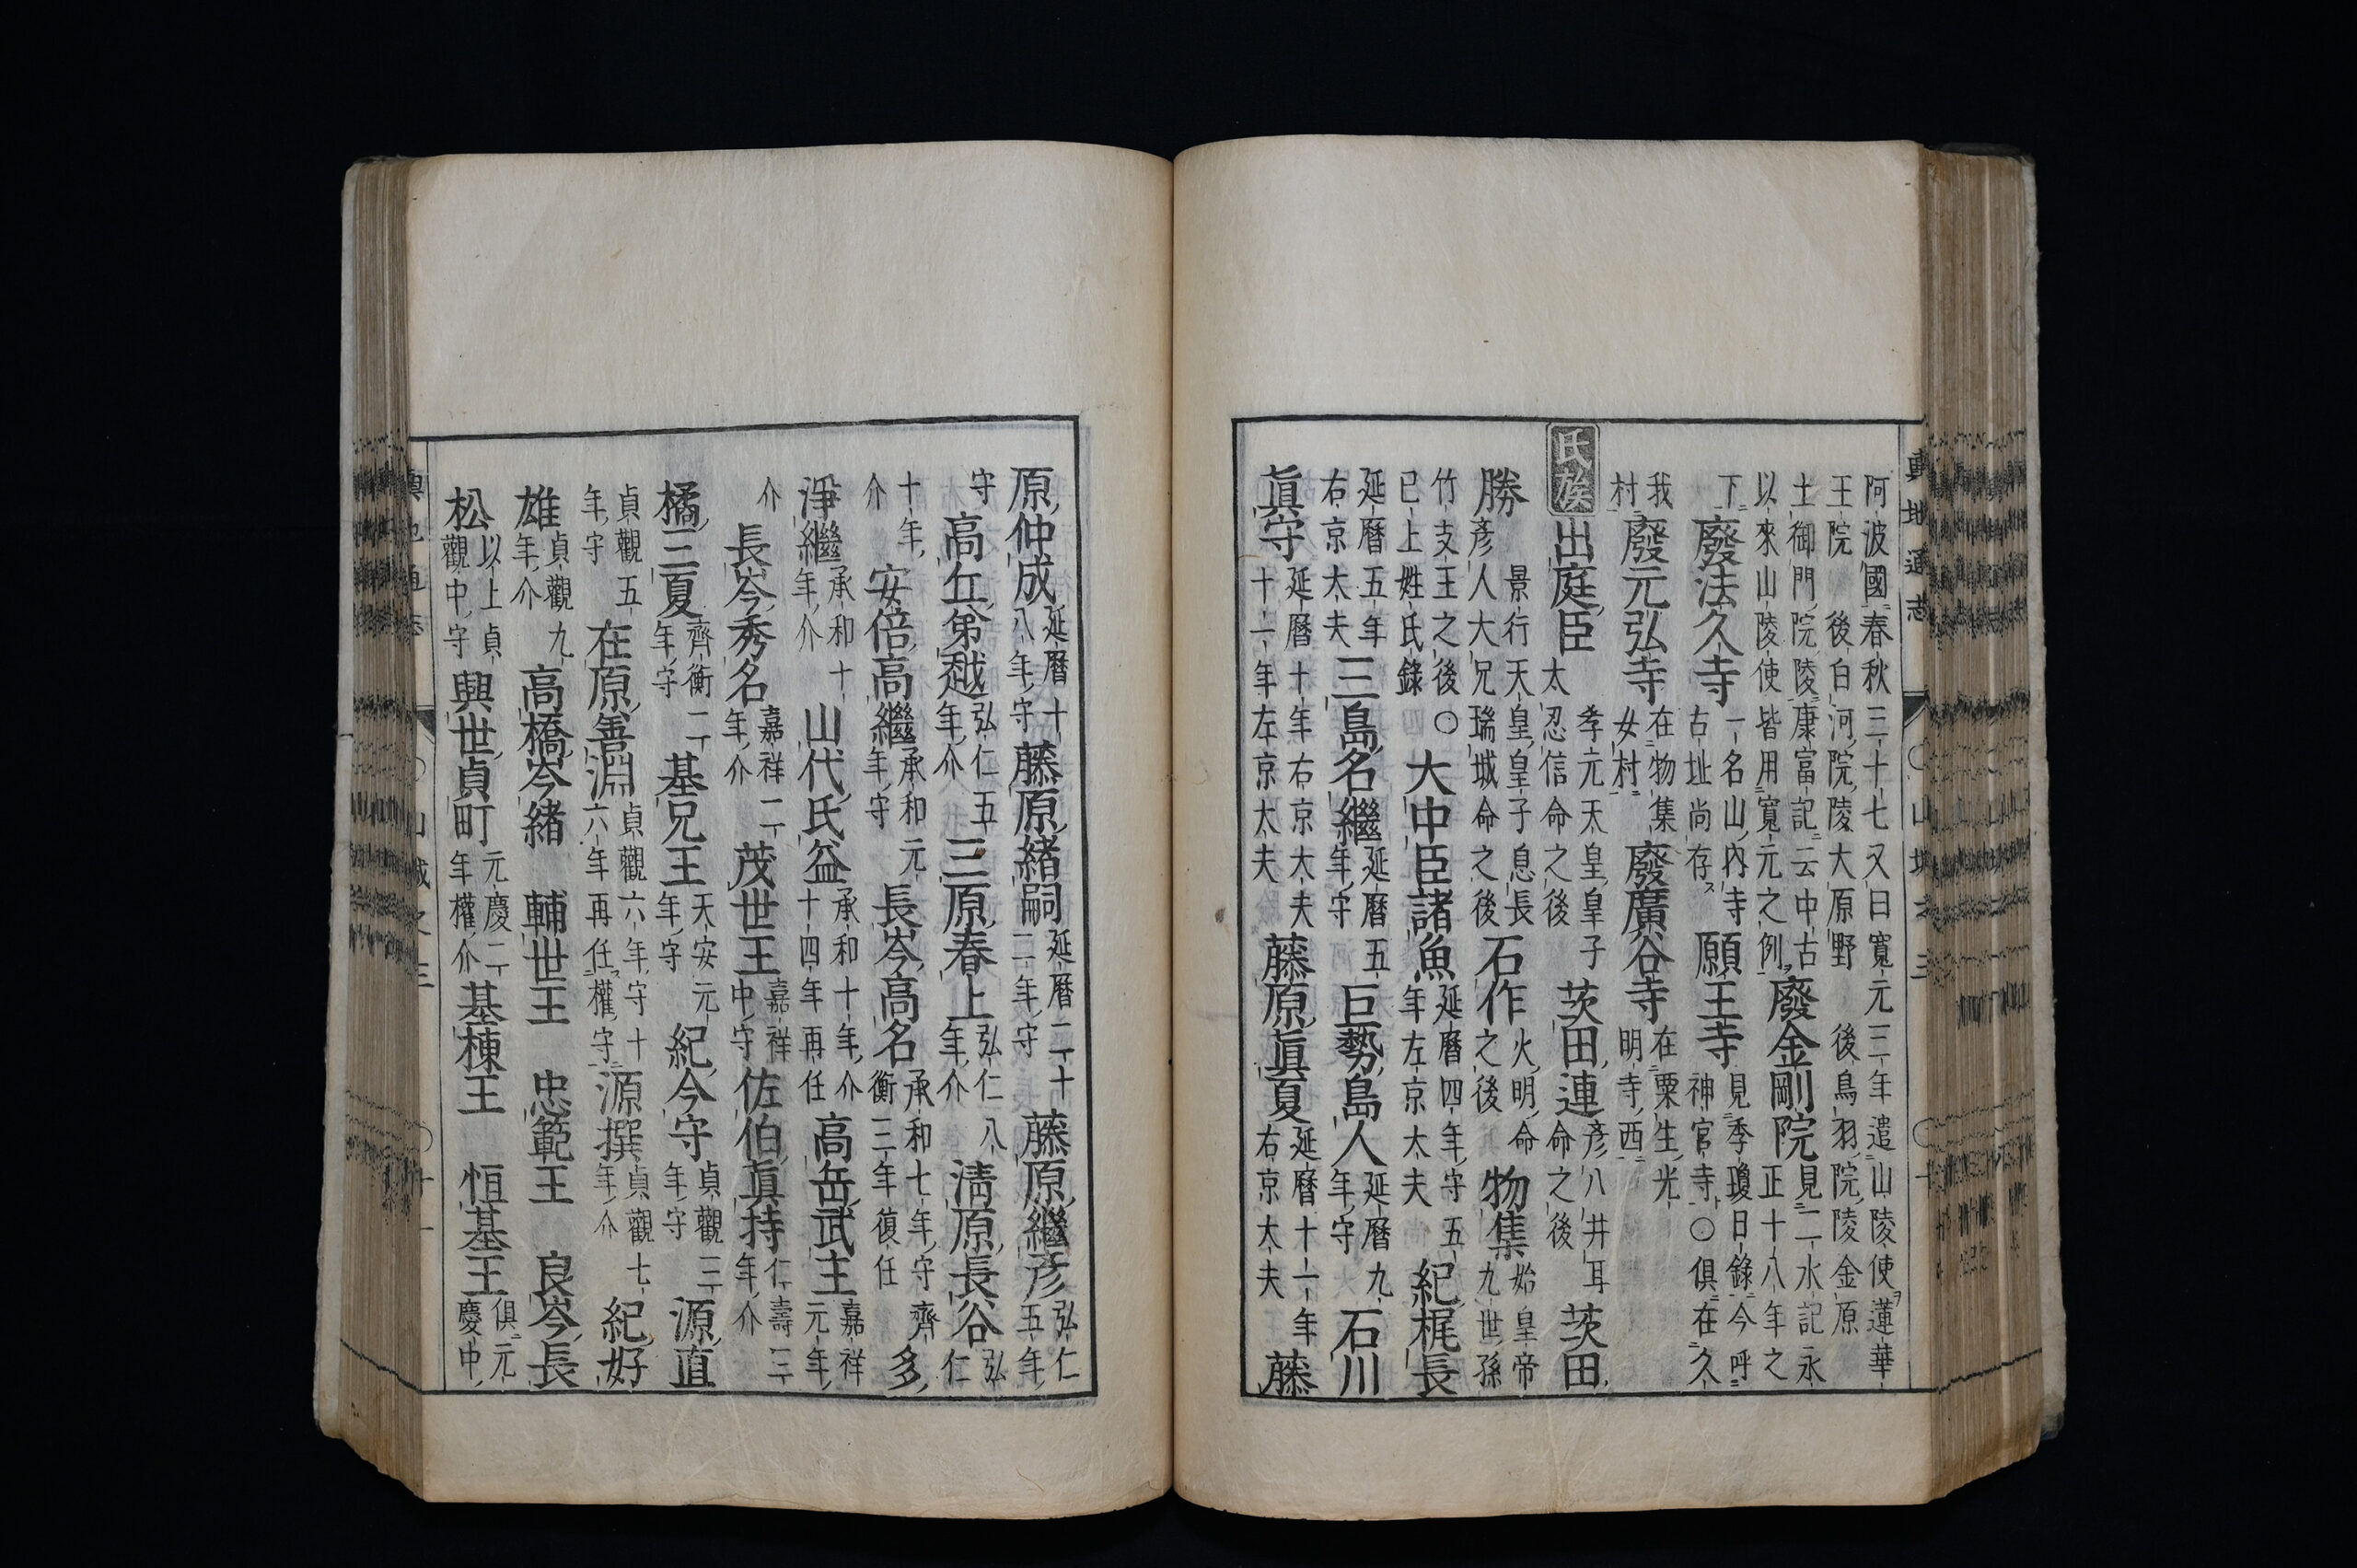 輿地通志 ○山城之三 ○十
阿波國春秋三十七又曰寬元三年遣山陵使蓮華
王院 後白河院陵大原野 後鳥羽院陵金原
土御門院陵康富記云中古以來山陵使皆用寬元之例 廢金剛院 見二水記永正十八年之
下 廢法久寺 一名山內寺古址尚存 願王寺 見季瓊日錄今呼神宮寺○俱在久
我村 廢元弘寺 在物集女村 廢廣谷寺 在粟生光明寺西
氏族 出庭臣 孝元天皇皇子太忍信命之後 茨田連 彥八井耳命之後 茨田
勝 景行天皇皇子息長彥人大兄瑞城命之後 石作 火明命之後 物集 始皇帝九世孫
竹支王之後○已上姓氏錄 大中臣諸魚 延曆四年守五年左京大夫 紀梶長
延曆五年右京大夫 三島名繼 延曆五年守 巨勢島人 延曆九年守 石川
眞守 延曆十年右京大夫十一年左京大夫 藤原眞夏 延曆十一年右京大夫 藤
原仲成 延曆十八年守 藤原緒嗣 延曆二十二年守 藤原繼彥 弘仁五年
守 高丘弟越 弘仁五年介 三原春上 弘仁八年介 淸原長谷 弘仁
十年介 安倍高繼 承和元年守 長岑高名 承和七年守齊衡三年復任 多
淨繼 承和十年介 山代氏益 承和十年介十四年再任 高岳武主 嘉祥元年
介 長岑秀名 嘉祥二年介 茂世王 嘉祥中守 佐伯眞持 仁壽三年介
橘三夏 齊衡二年守 基兄王 天安元年守 紀今守 貞觀三年守 源直
貞觀五年守 在原善淵 貞觀六年守十六年再任權守 源撰 貞觀七年介 紀好
雄 貞觀九年介 高橋岑緒 輔世王 忠範王 良岑長
松 以上貞觀中守 興世貞町 元慶二年權介 基棟王 恒基王 俱元慶中